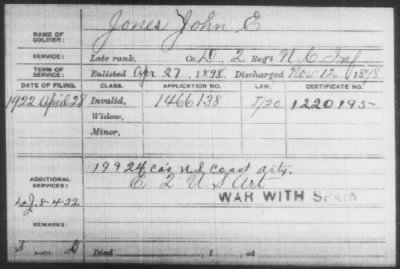 NAME OF SOLDIER: Jones John E
SERVICE: Late rank, Co. D, 2 Reg't N.C. Inf
TERM OF SERVICE: Enlisted Apr 27, 1898, Discharged Nov 12, 1898
DATE OF FILING. CLASS. APPLICATION NO. LAW. CERTIFICATE NO.
1922 April 28 Invalid, 1466138 1220195
Widow,
Minor,
ADDITIONAL SERVICES: 19 & 24 co's U.S. Coast arty.
E 2 U S Art
WAR WITH SPAIN
8-4-22
REMARKS:
Died , 1 , at